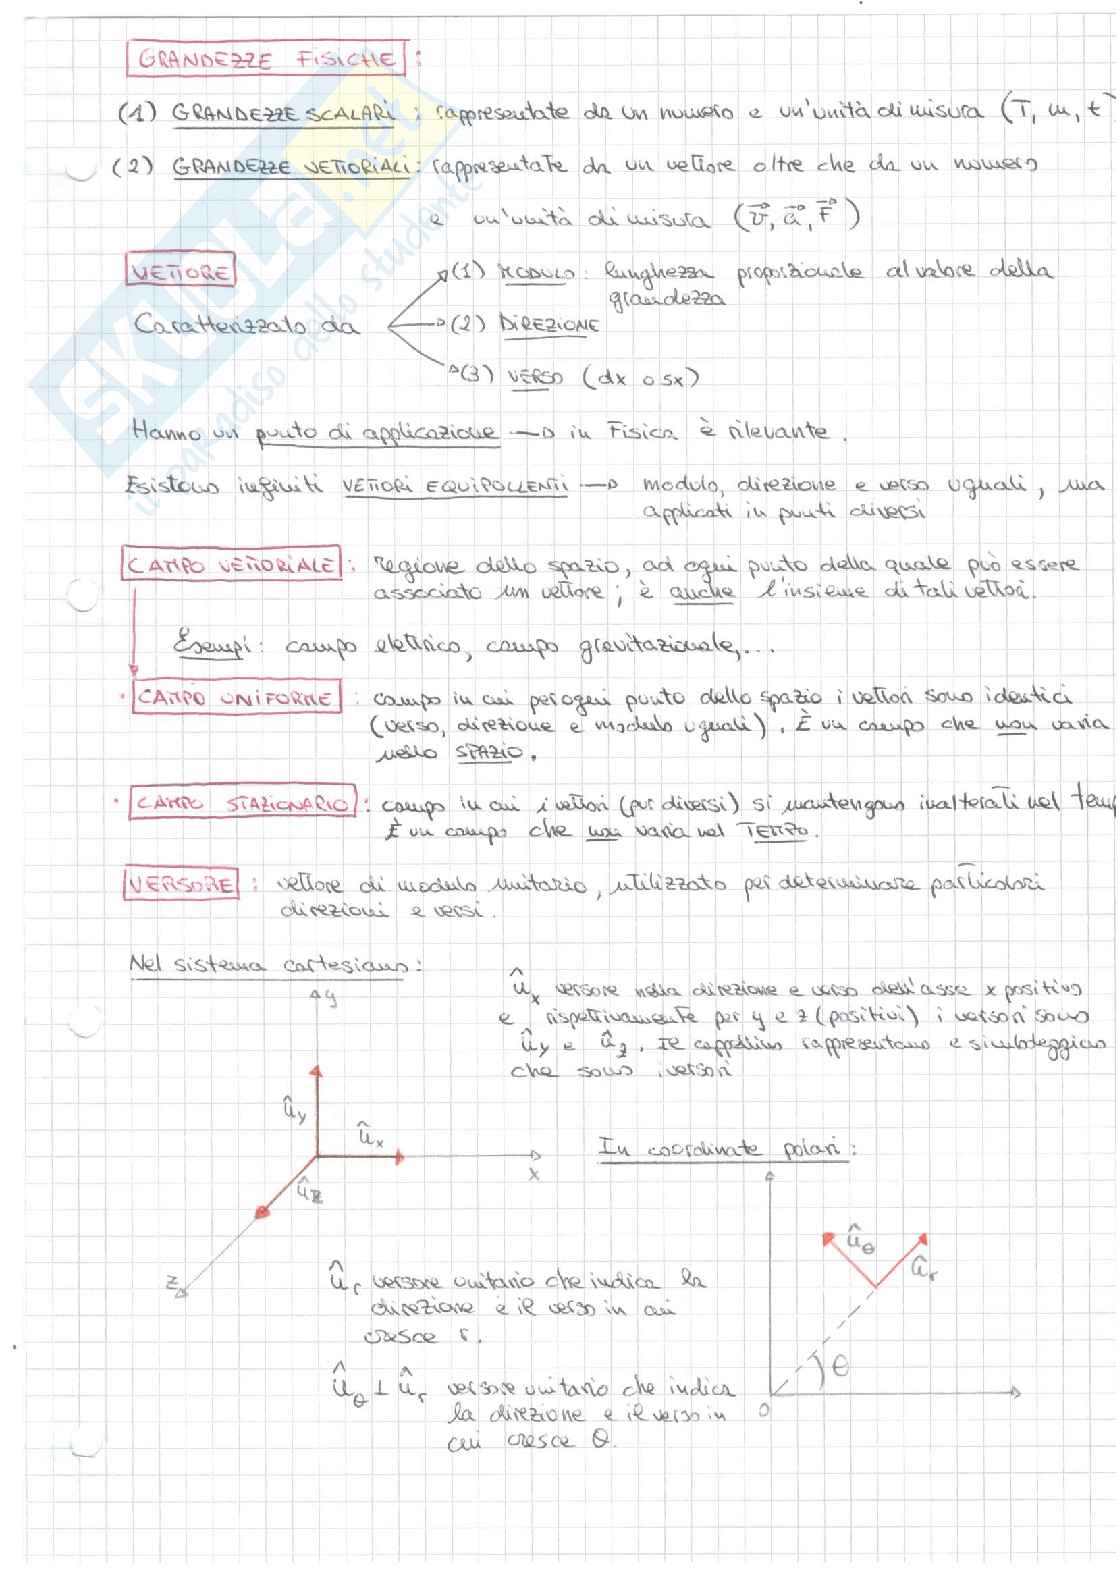 GRANDEZZE FISICHE :
(1) GRANDEZZE SCALARI : rappresentate da un numero e un'unità di misura (T, m, t
(2) GRANDEZZE VETTORIALI : rappresentate da un vettore oltre che da un numero
e un'unità di misura (v⃗, a⃗, F⃗)
VETTORE
(1) MODULO : lunghezza proporzionale al valore della
grandezza
Caratterizzato da
(2) DIREZIONE
(3) VERSO (dx o sx)
Hanno un punto di applicazione → in Fisica è rilevante.
Esistono infiniti VETTORI EQUIPOLLENTI → modulo, direzione e verso uguali, ma
applicati in punti diversi
CAMPO VETTORIALE : regione dello spazio, ad ogni punto della quale può essere
associato un vettore; è anche l'insieme di tali vettori.
Esempi : campo elettrico, campo gravitazionale,...
· CAMPO UNIFORME : campo in cui per ogni punto dello spazio i vettori sono identici
(verso, direzione e modulo uguali). È un campo che non varia
nello SPAZIO.
· CAMPO STAZIONARIO : campo in cui i vettori (pur diversi) si mantengono inalterati nel temp
È un campo che non varia nel TEMPO.
VERSORE : vettore di modulo unitario, utilizzato per determinare particolari
direzioni e versi.
Nel sistema cartesiano :
û_x versore nella direzione e verso dell'asse x positivo
e rispettivamente per y e z (positivi) i versori sono
û_y e û_z. Il cappellino rappresentano e simboleggiano
che sono i versori
y
û_y
û_x
x
û_z
z
In coordinate polari :
û_θ
û_r
θ
O
û_r versore unitario che indica la
direzione e il verso in cui
cresce r.
û_θ ⊥ û_r versore unitario che indica
la direzione e il verso in
cui cresce θ.
SKUOLA.net
il paradiso dello studente